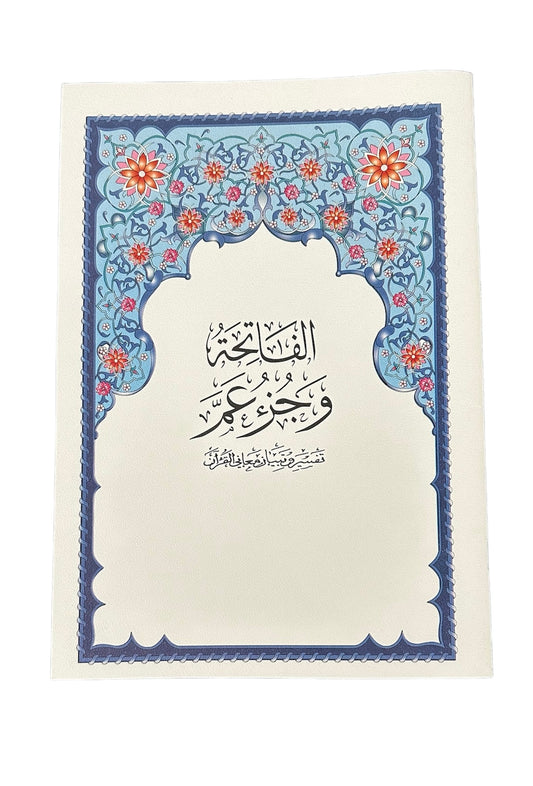 الفَاتِحَةُ
وَجُزءُ عَمَّ
تفسير وتبيان معاني القرآن